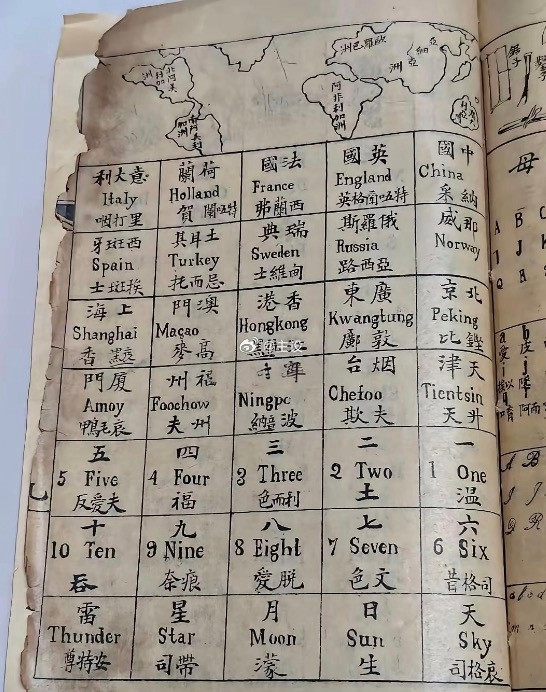 北阿美利加洲
南阿美利加洲
歐羅巴洲
亞細亞洲
阿非利加洲
中國
China
采納
英國
England
法國
France
弗蘭西
荷蘭
Holland
意大利
Italy
咽打里
那威
Norway
俄羅斯
Russia
路西亞
瑞典
Sweden
士維向
土耳其
Turkey
托而忌
西班牙
Spain
士班挨
北京
Peking
比鏗
廣東
Kwangtung
香港
Hongkong
澳門
Maçao
麥高
上海
Shanghai
香黑
天津
Tientsin
天升
烟台
Chefoo
寧
Ningpo
納音波
福州
Foochow
夫州
廈門
Amoy
鴨毛哀
一
1 One
温
二
2 Two
土
三
3 Three
色而利
四
4 Four
福
五
5 Five
反愛夫
六
6 Six
昔格司
七
7 Seven
色文
八
8 Eight
愛脱
九
9 Nine
奈痕
十
10 Ten
吞
天
Sky
司格哀
日
Sun
生
月
Moon
濛
星
Star
司帶
雷
Thunder
尊特安
母
A B C